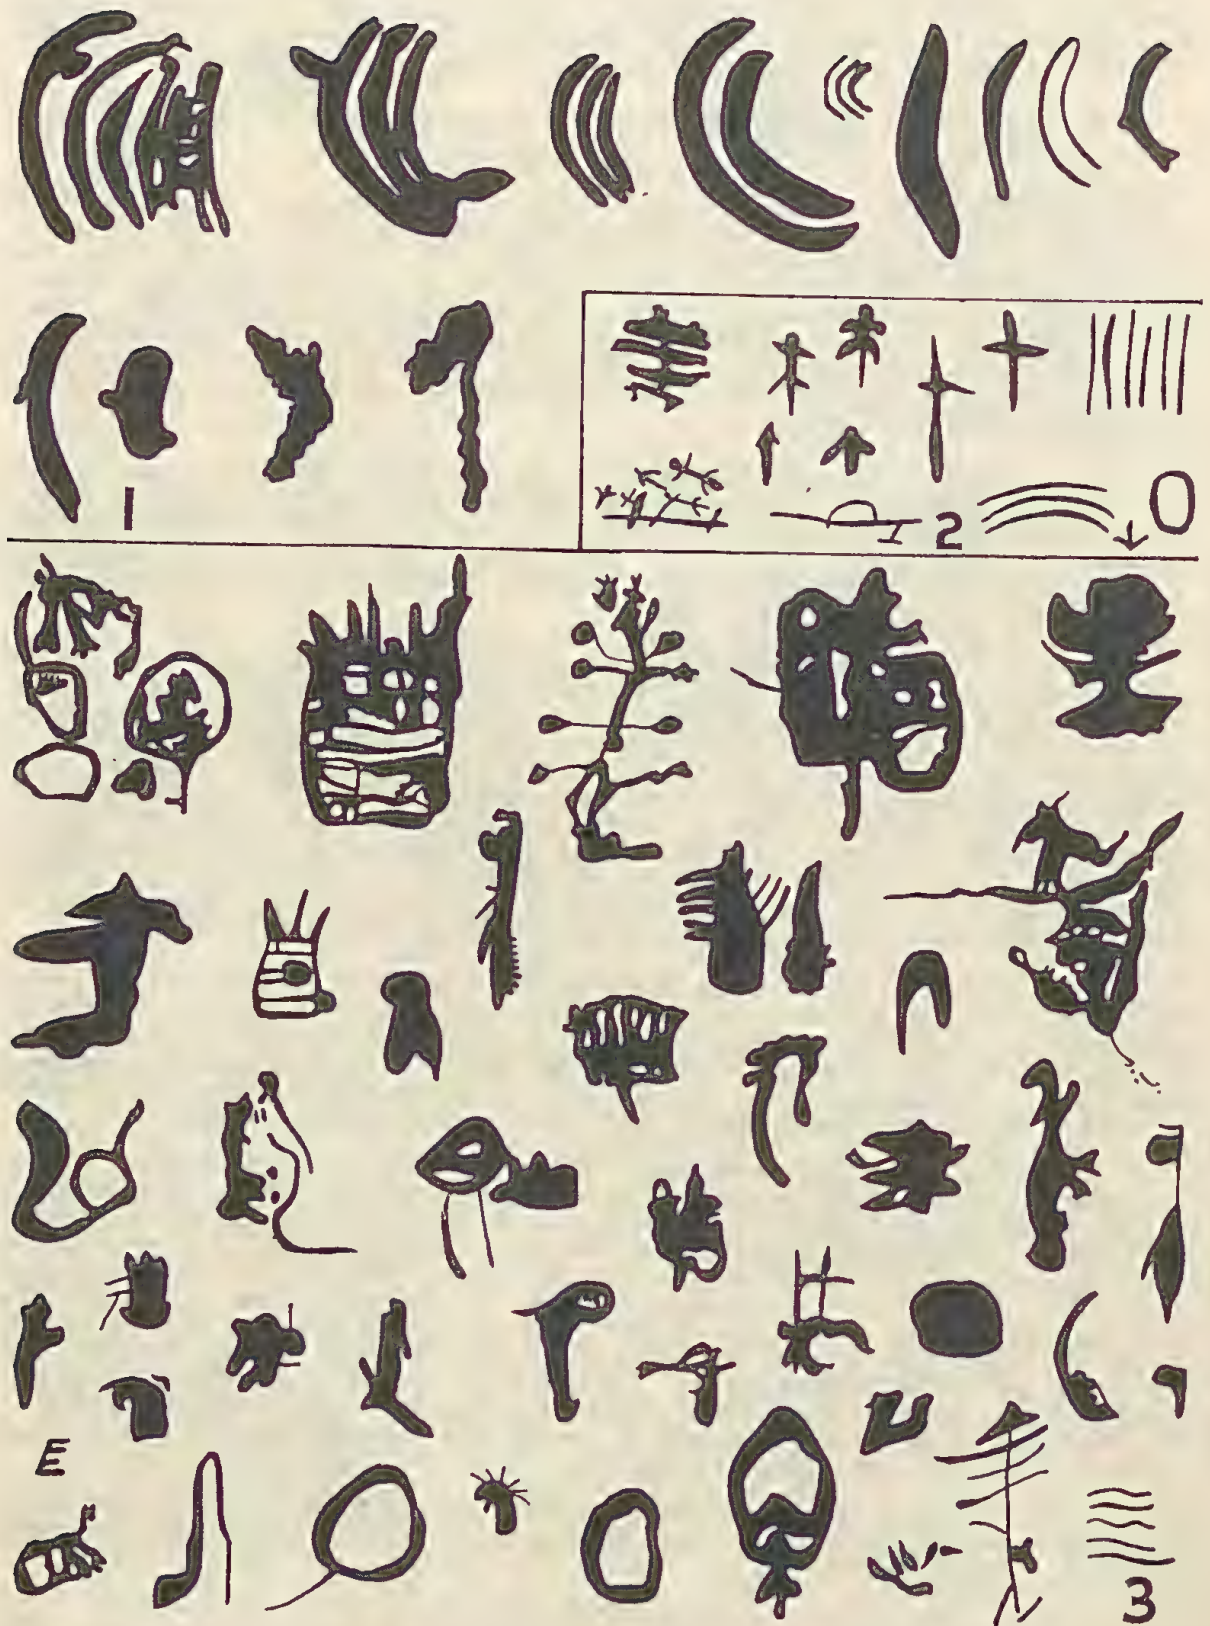 1
2
E
3